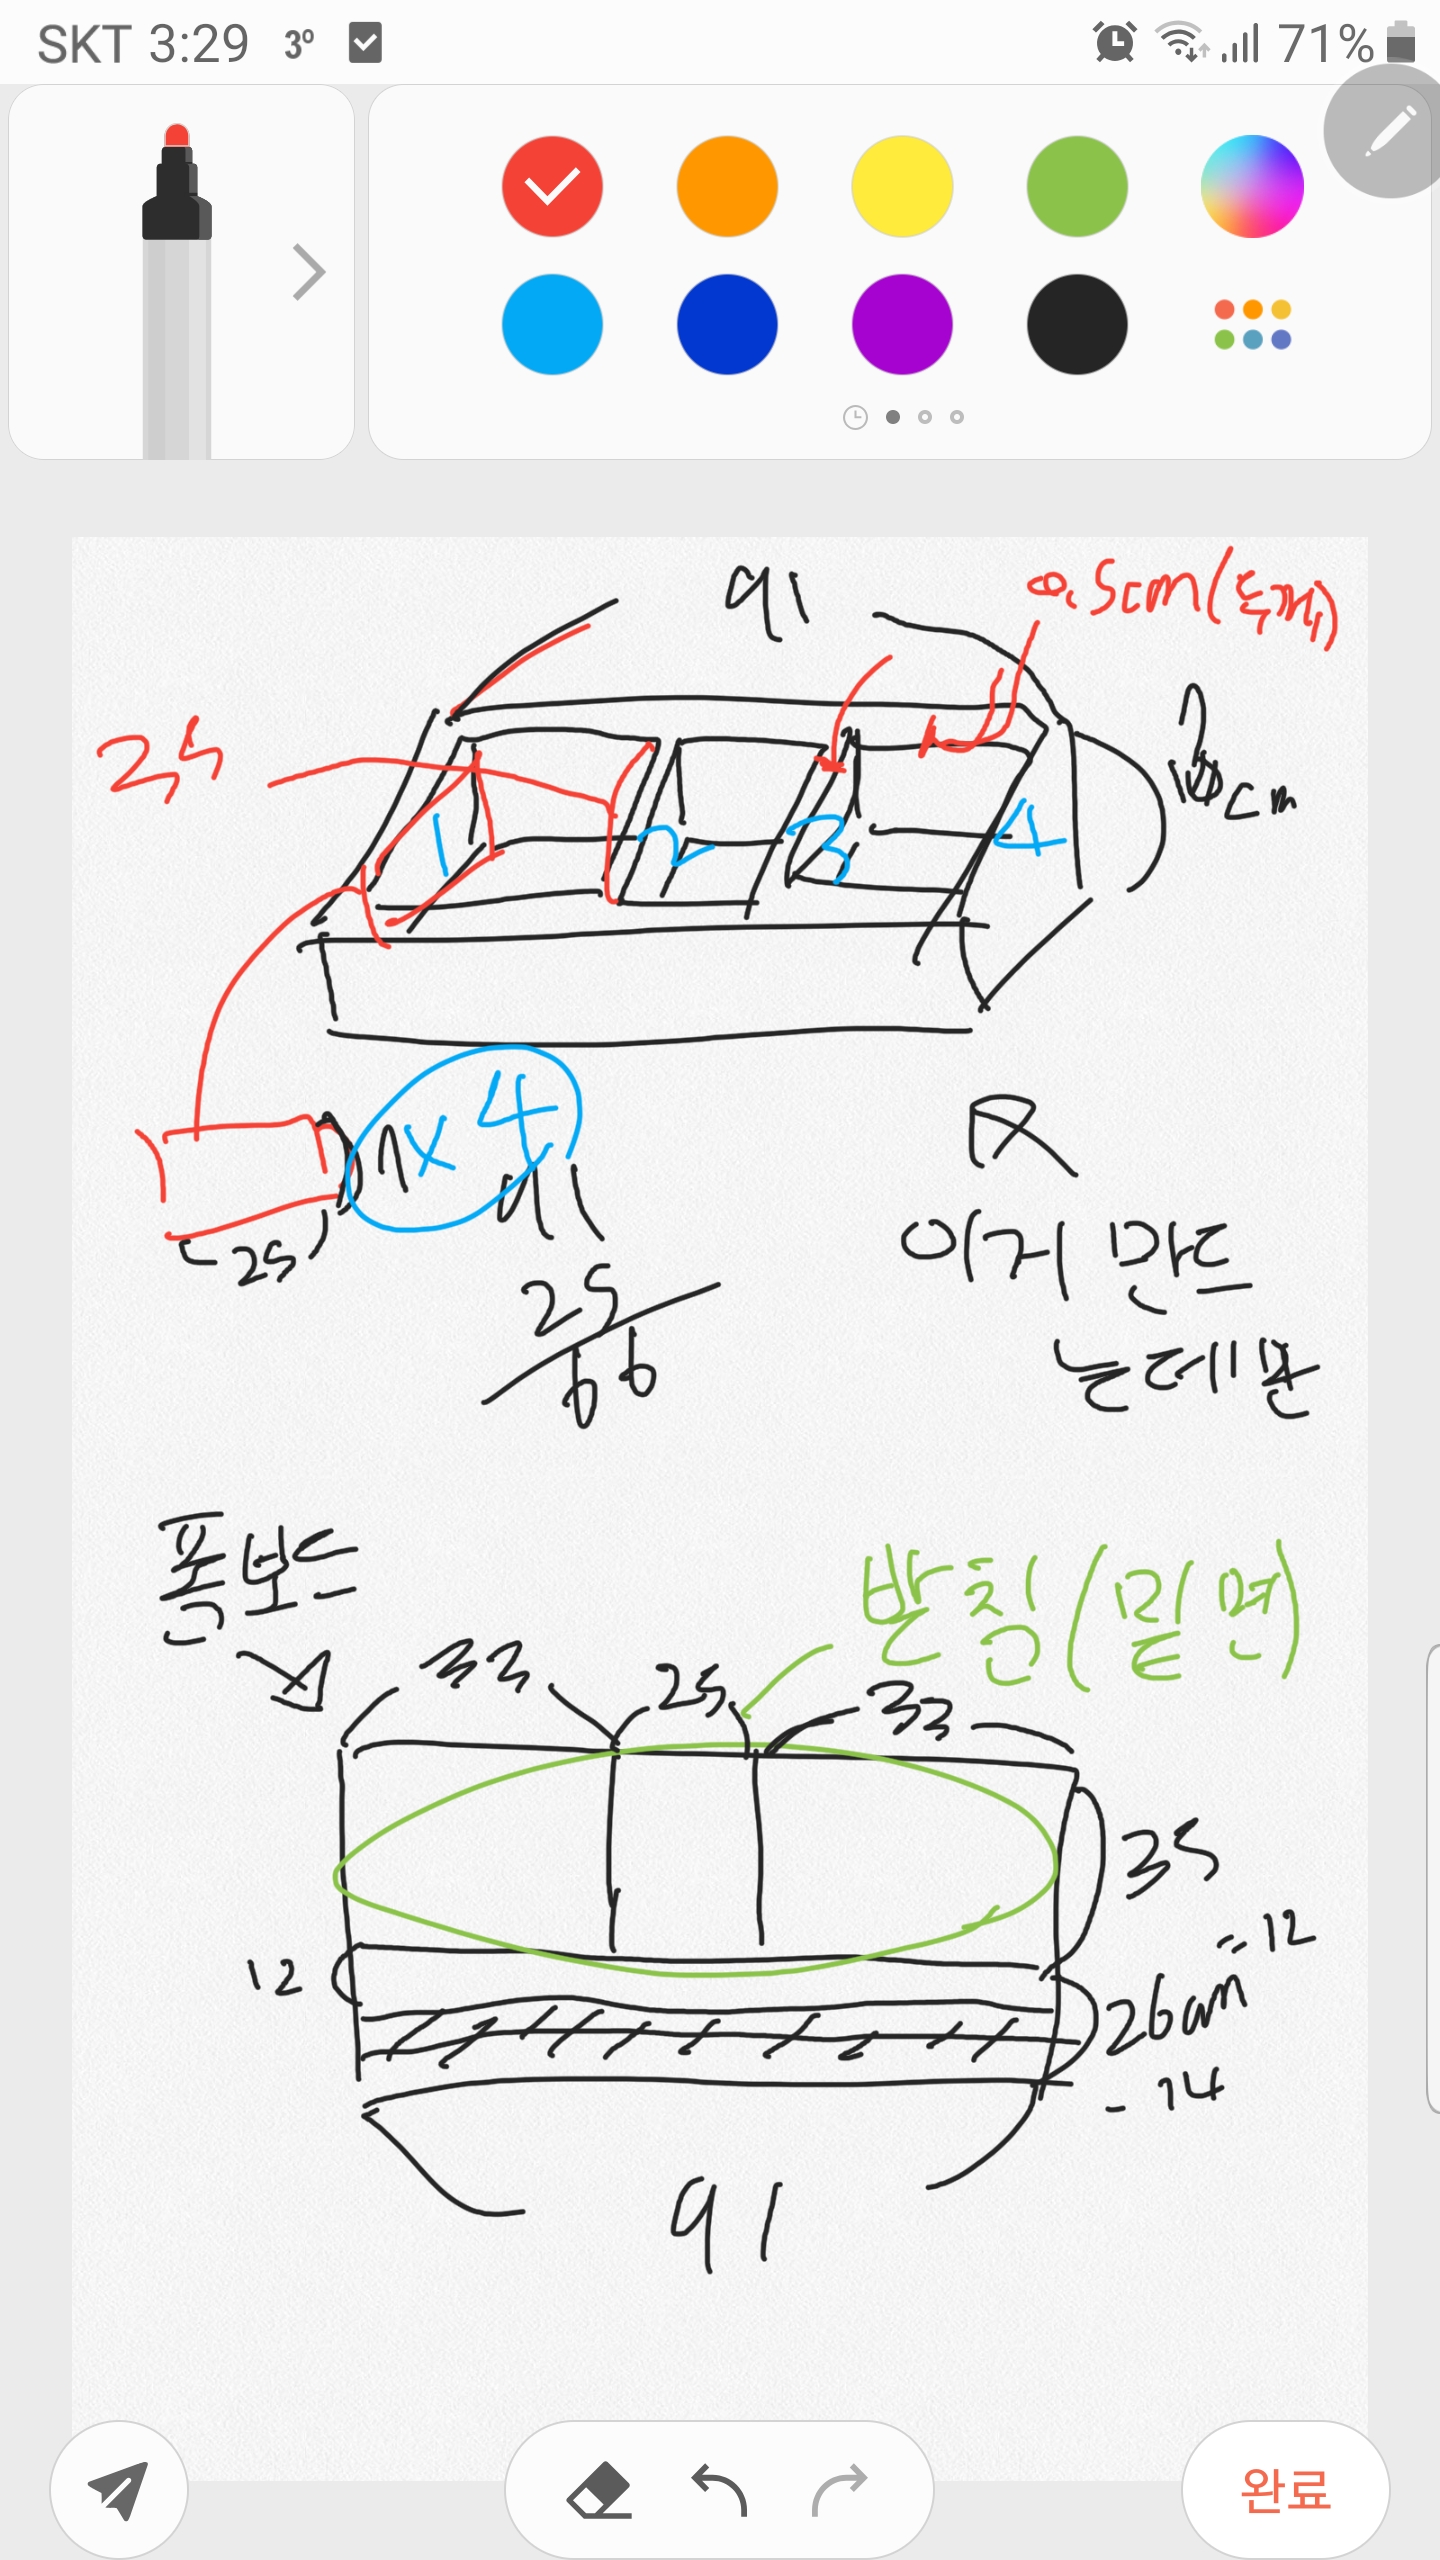 SKT 3:29 3º 71%
91
0.5cm(두께)
25
1 2 3 4
cm
×4
25
91
25
66
이거 만드
는데 판
폼보드
발침(밑면)
33 25 33
35
12
-12
26cm
-14
91
완료